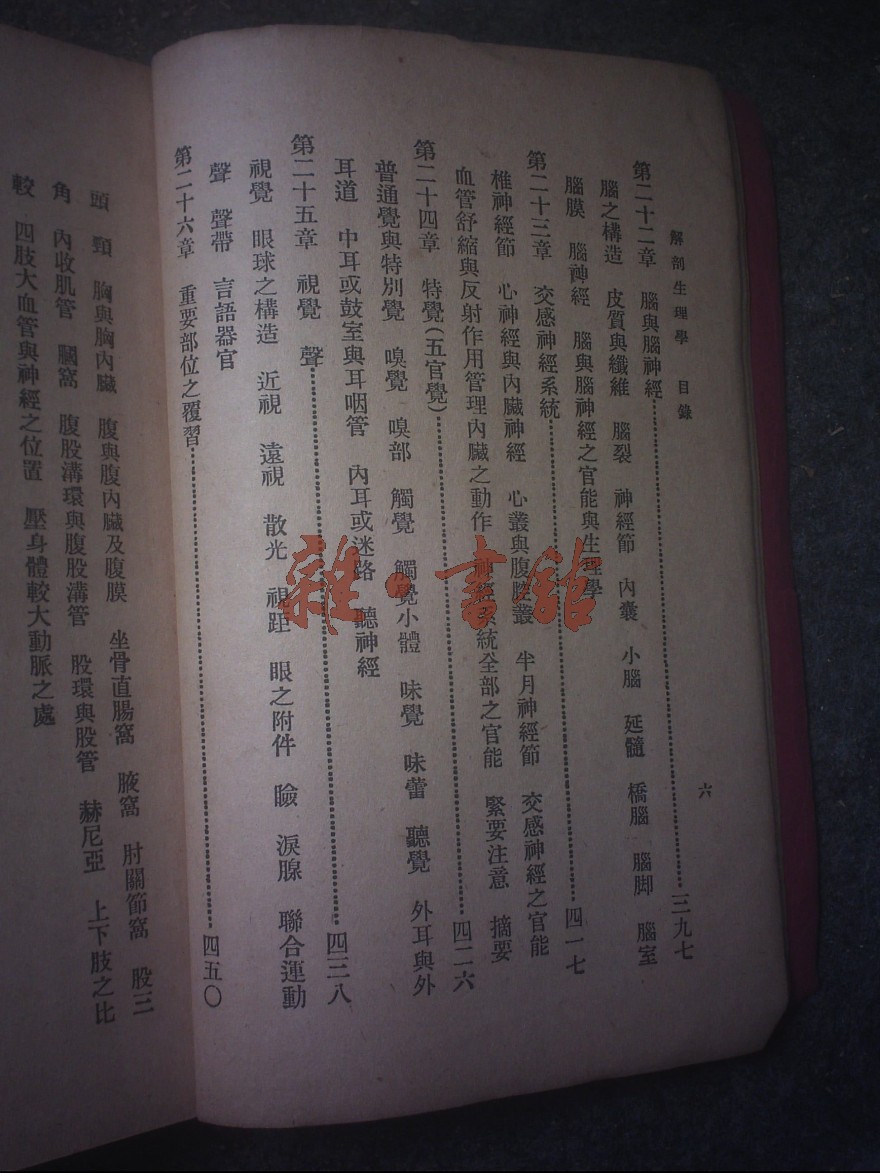 解剖生理學 目錄
六
第二十二章 腦與腦神經⋯⋯三九七
腦之構造 皮質與纖維 腦裂 神經節 內囊 小腦 延髓 橋腦 腦脚 腦室
腦膜 腦神經 腦與腦神經之官能與生理學
第二十三章 交感神經系統⋯⋯四一七
椎神經節 心神經與內臟神經 心叢與腹腔叢 半月神經節 交感神經之官能
血管舒縮與反射作用管理內臟之動作 神經系統全部之官能 緊要注意 摘要
第二十四章 特覺(五官覺)⋯⋯四二六
普通覺與特別覺 嗅覺 嗅部 觸覺 觸覺小體 味覺 味蕾 聽覺 外耳與外
耳道 中耳或鼓室與耳咽管 內耳或迷路 聽神經
第二十五章 視覺 聲⋯⋯四三八
視覺 眼球之構造 近視 遠視 散光 視距 眼之附件 瞼 淚腺 聯合運動
聲 聲帶 言語器官
第二十六章 重要部位之覆習⋯⋯四五〇
頭 頸 胸與胸內臟 腹與腹內臟及腹膜 坐骨直腸窩 腋窩 肘關節窩 股三
角 內收肌管 膕窩 腹股溝環與腹股溝管 股環與股管 赫尼亞 上下肢之比
較 四肢大血管與神經之位置 壓身體較大動脈之處
雜·書館